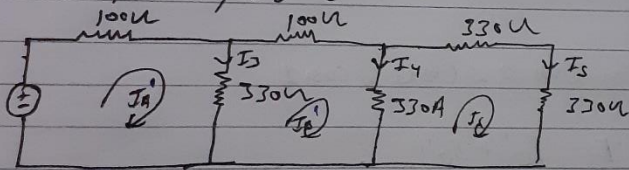 100Ω 100Ω 330Ω
I3 I4 I5
IA' 330Ω IB' 330Ω 330Ω